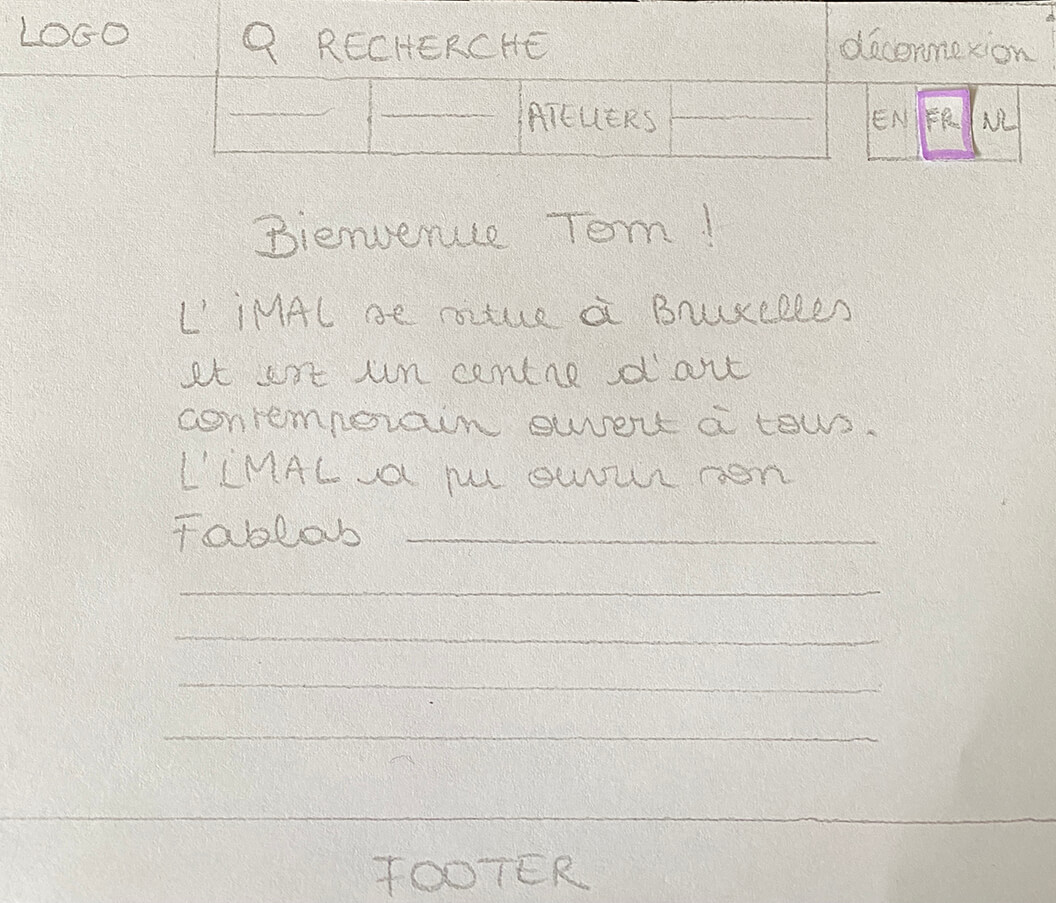 LOGO
RECHERCHE
déconnexion
ATELIERS
EN FR NL
Bienvenue Tom !
L'iMAL se situe à Bruxelles
et est un centre d'art
contemporain ouvert à tous.
L'iMAL a pu ouvrir son
Fablab
FOOTER